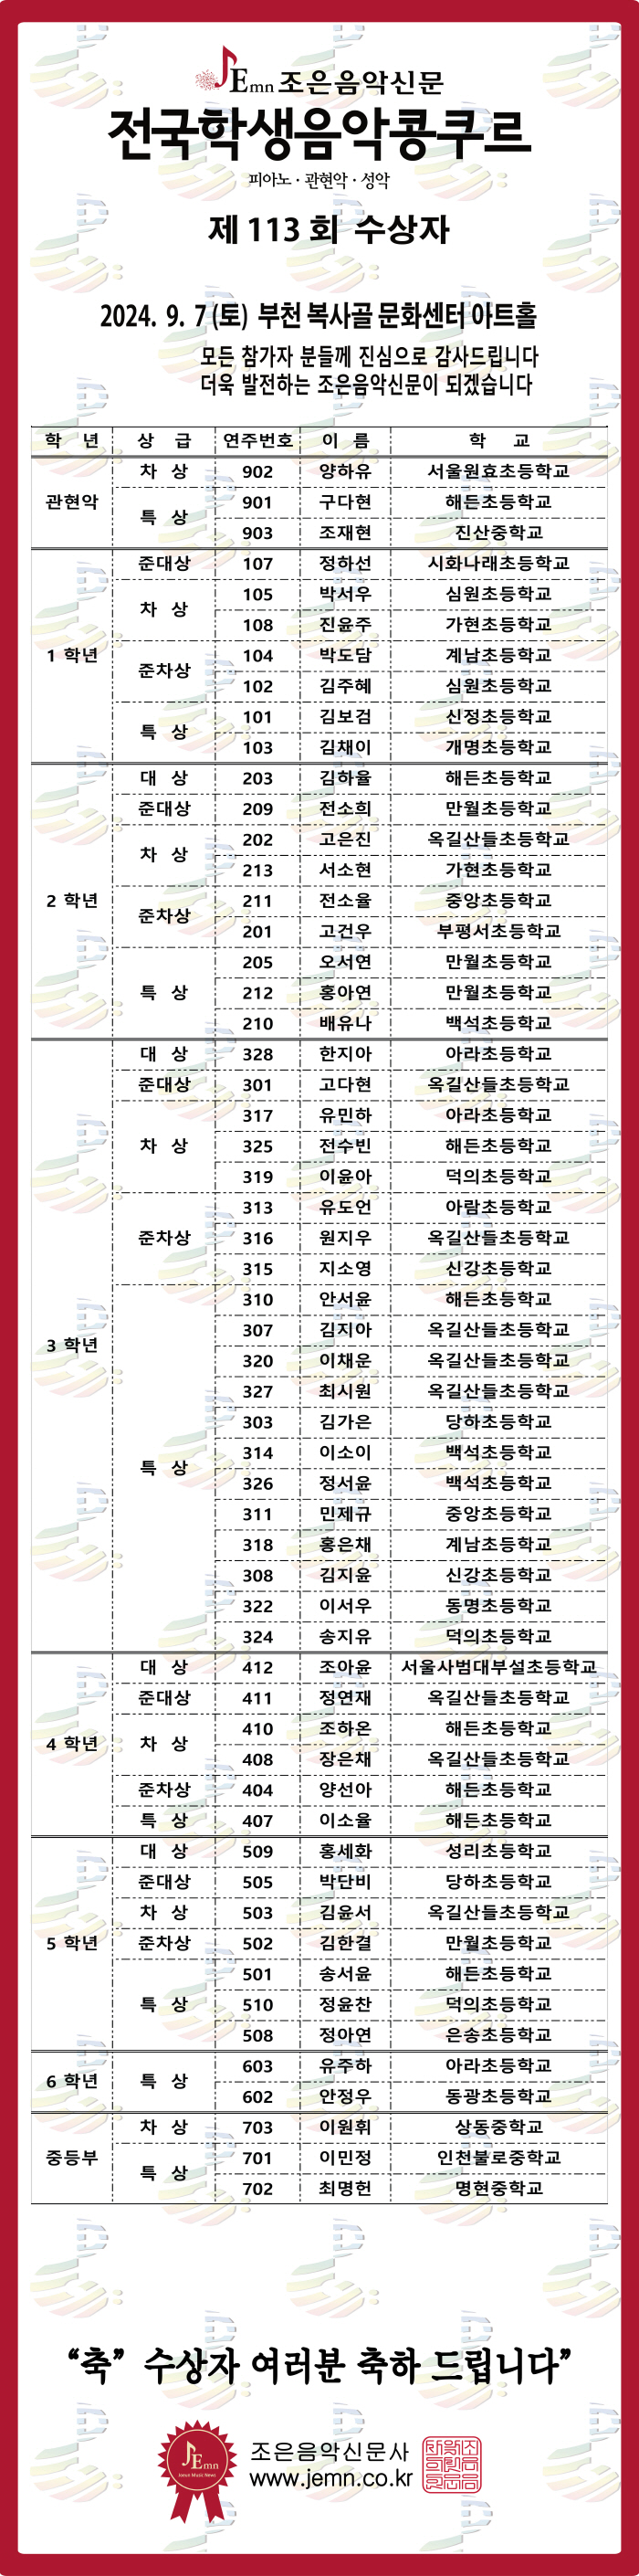 JEmn 조은음악신문
전국학생음악콩쿠르
피아노 · 관현악 · 성악
제 113 회 수상자
2024. 9. 7 (토) 부천 복사골 문화센터 아트홀
모든 참가자 분들께 진심으로 감사드립니다
더욱 발전하는 조은음악신문이 되겠습니다
학 년 상 급 연주번호 이 름 학 교
관현악 차 상 902 양하유 서울원효초등학교
특 상 901 구다현 해든초등학교
903 조재현 진산중학교
1 학년 준대상 107 정하선 시화나래초등학교
차 상 105 박서우 심원초등학교
108 진윤주 가현초등학교
준차상 104 박도담 계남초등학교
102 김주혜 심원초등학교
특 상 101 김보검 신정초등학교
103 김채이 개명초등학교
2 학년 대 상 203 김하율 해든초등학교
준대상 209 전소희 만월초등학교
차 상 202 고은진 옥길산들초등학교
213 서소현 가현초등학교
준차상 211 전소율 중앙초등학교
201 고건우 부평서초등학교
특 상 205 오서연 만월초등학교
212 홍아연 만월초등학교
210 배유나 백석초등학교
3 학년 대 상 328 한지아 아라초등학교
준대상 301 고다현 옥길산들초등학교
차 상 317 유민하 아라초등학교
325 전수빈 해든초등학교
319 이윤아 덕의초등학교
준차상 313 유도언 아람초등학교
316 원지우 옥길산들초등학교
315 지소영 신강초등학교
특 상 310 안서윤 해든초등학교
307 김지아 옥길산들초등학교
320 이채운 옥길산들초등학교
327 최시원 옥길산들초등학교
303 김가은 당하초등학교
314 이소이 백석초등학교
326 정서윤 백석초등학교
311 민제규 중앙초등학교
318 홍은채 계남초등학교
308 김지윤 신강초등학교
322 이서우 동명초등학교
324 송지유 덕의초등학교
4 학년 대 상 412 조아윤 서울사범대부설초등학교
준대상 411 정연재 옥길산들초등학교
차 상 410 조하온 해든초등학교
408 장은채 옥길산들초등학교
준차상 404 양선아 해든초등학교
특 상 407 이소율 해든초등학교
5 학년 대 상 509 홍세화 성리초등학교
준대상 505 박단비 당하초등학교
차 상 503 김윤서 옥길산들초등학교
준차상 502 김한결 만월초등학교
특 상 501 송서윤 해든초등학교
510 정윤찬 덕의초등학교
508 정아연 은송초등학교
6 학년 특 상 603 유주하 아라초등학교
602 안정우 동광초등학교
중등부 차 상 703 이원휘 상동중학교
특 상 701 이민정 인천불로중학교
702 최명헌 명현중학교
“축” 수상자 여러분 축하 드립니다”
JEmn
Joeun Music News
조은음악신문사
www.jemn.co.kr